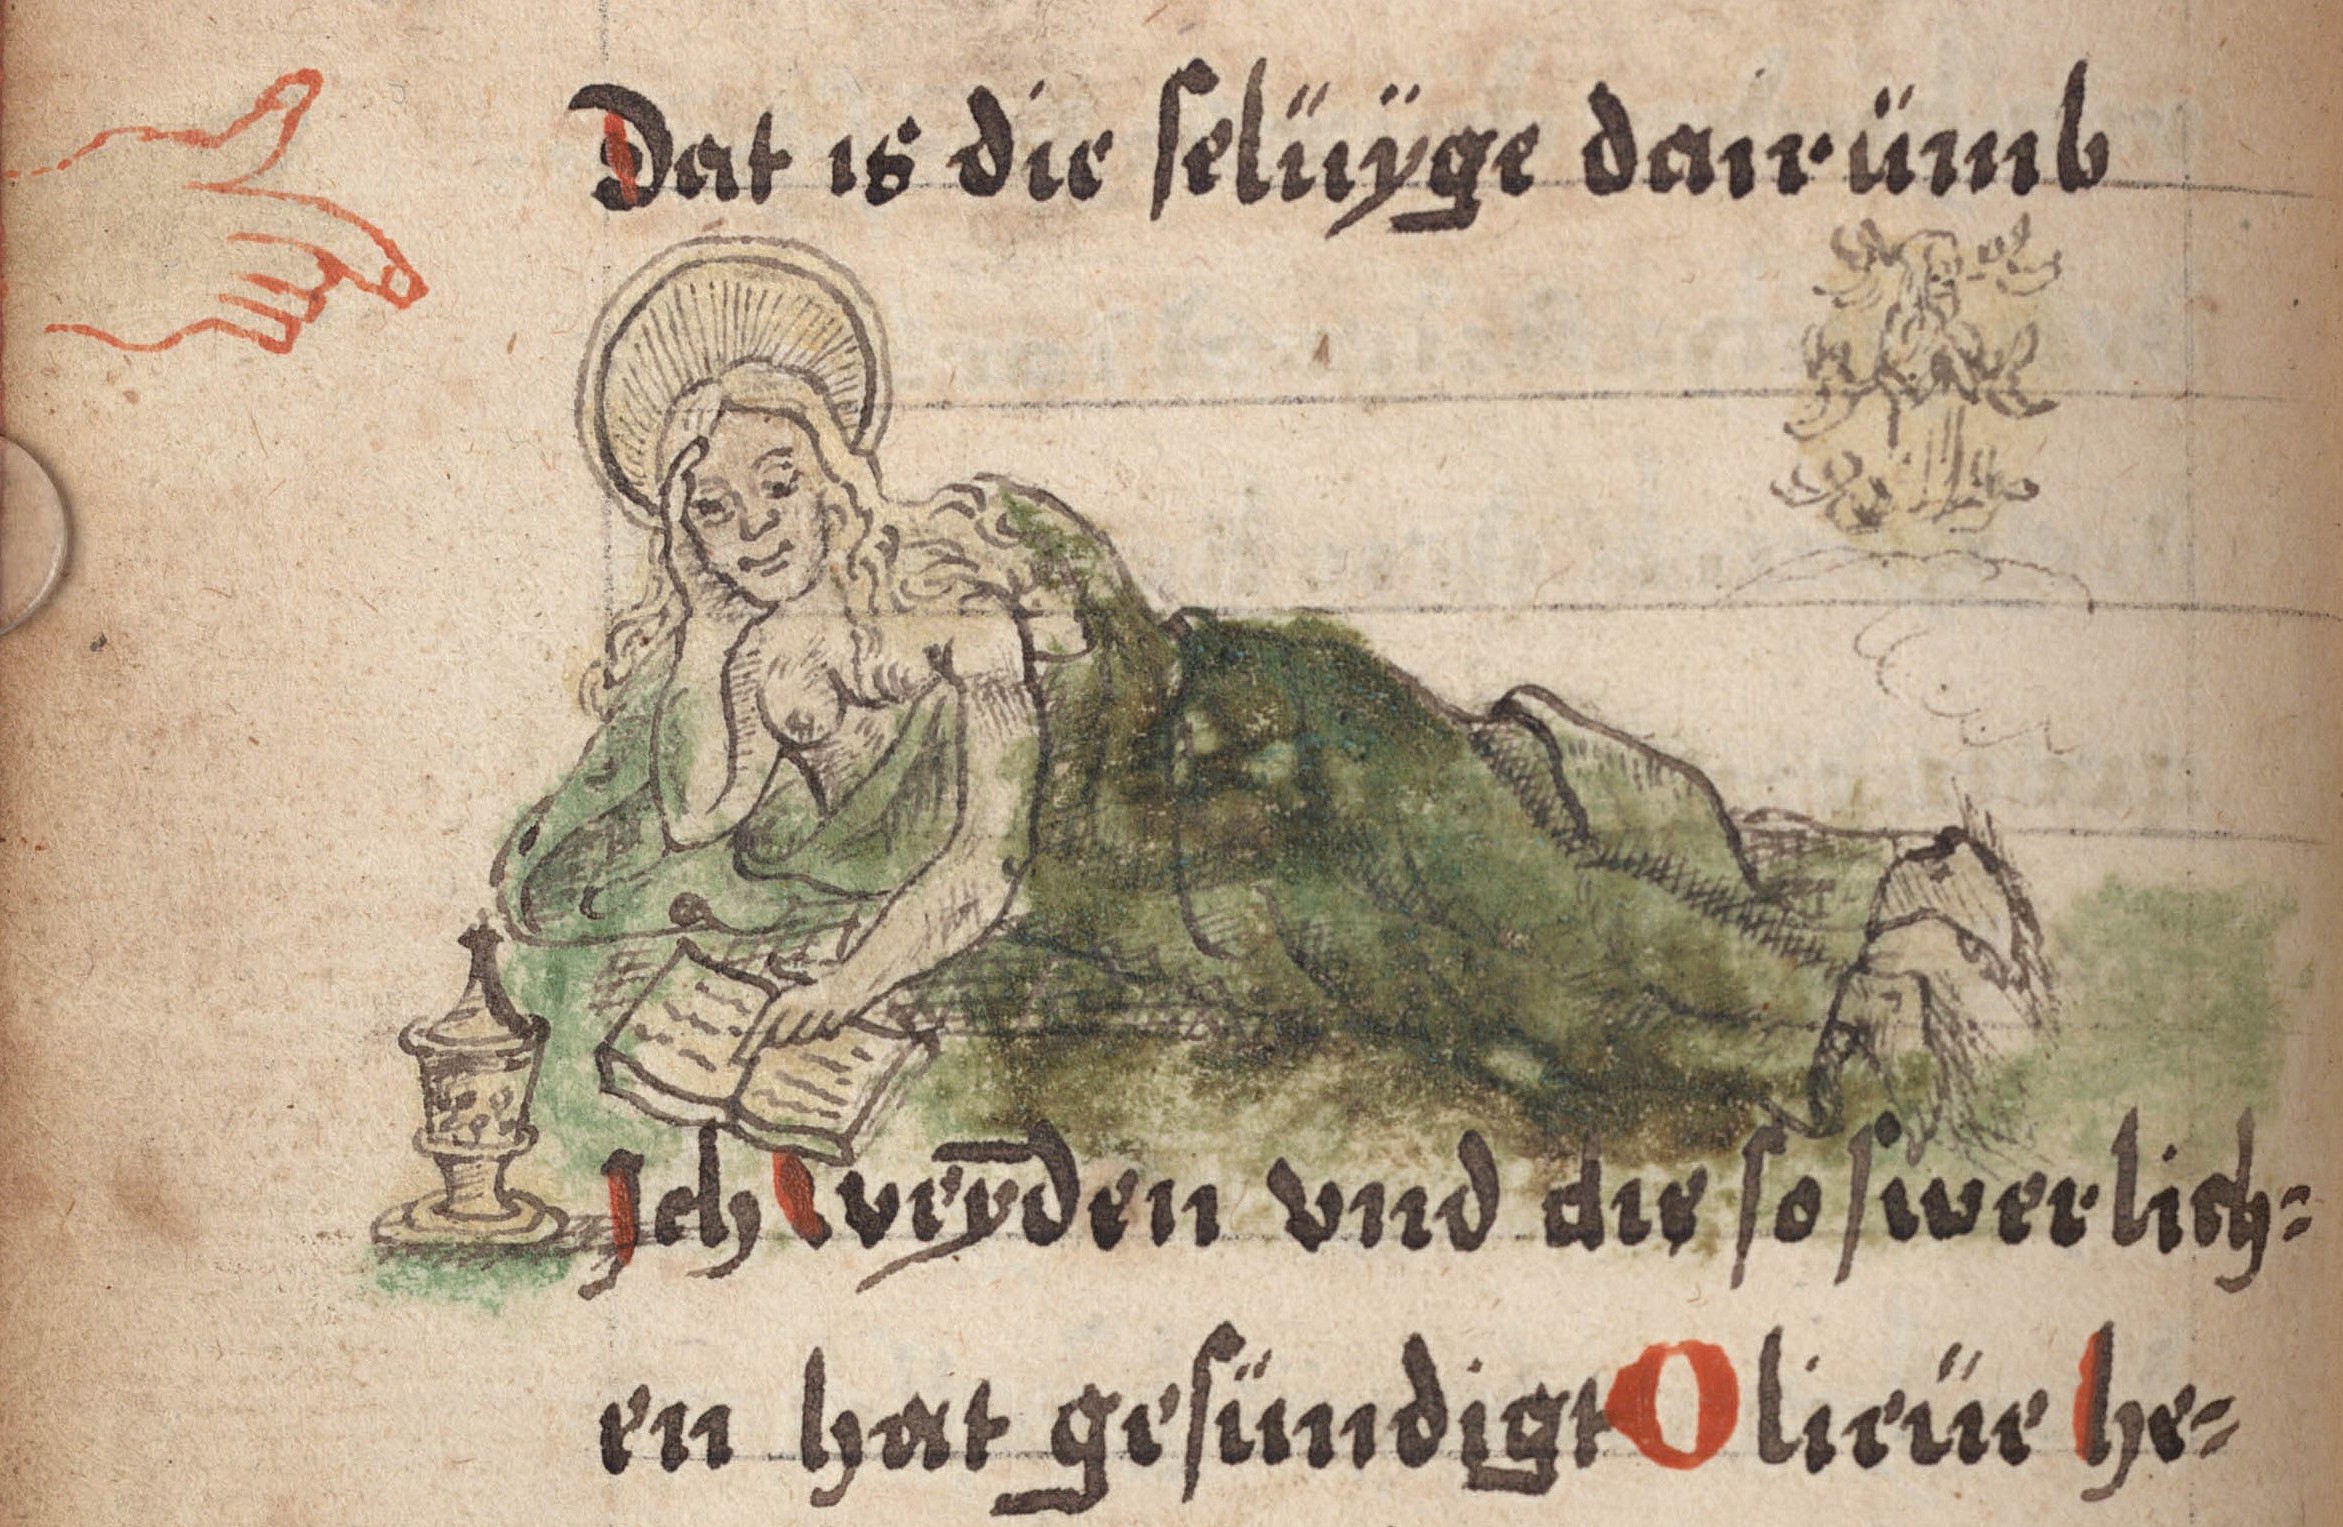 Dat is die selüÿge dairümb
Ich weȳden vnd die so swerlich=
en hat gesündigt O lieüe he=